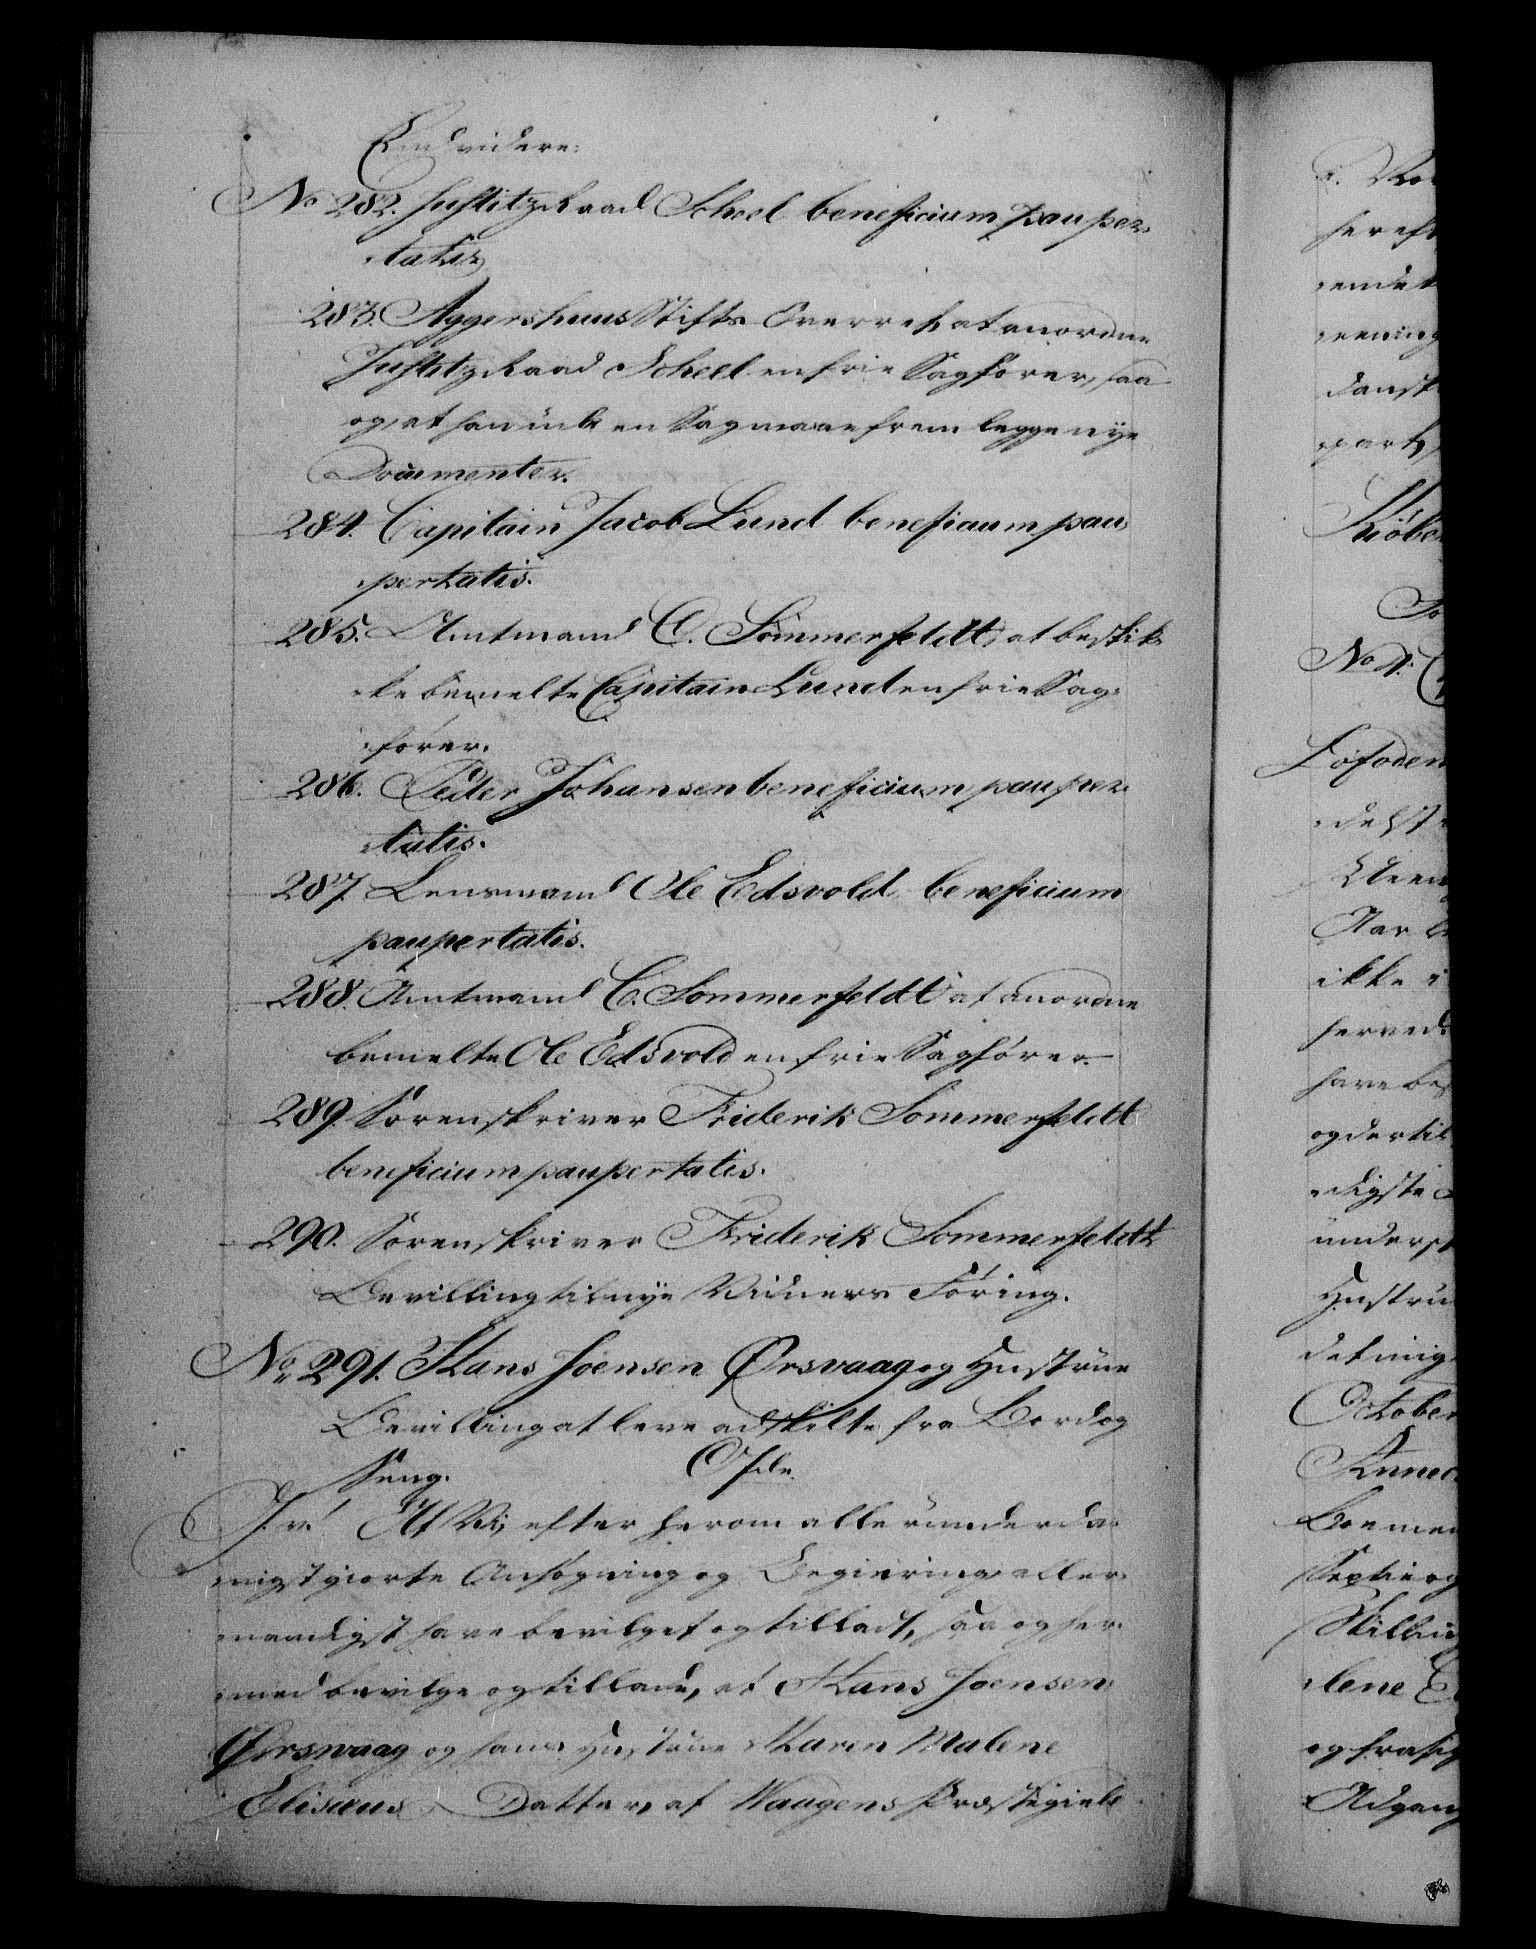 Endvidere:
No 282. Justitzraad Scheel beneficium pauper-
tatis,
283. Aggershuus Stifts Overret at anordne
Justitzraad Scheel en frie Sagfører, saa
og, at han inde en Sag maae fremlegge nye
Documenter.
284. Capitain Jacob Lund beneficium pau-
pertatis.
285. Amtmand C. Sommerfeldt, at beskik-
ke bemelte Capitain Lund en frie Sag-
fører.
286. Peder Johansen beneficium pauper-
tatis.
287. Lensmand Ole Edsvold beneficium
paupertatis.
288. Amtmand C. Sommerfeldt at anordne
bemelte Ole Edsvold en frie Sagfører.
289. Sorenskriver Friderik Sommerfeldt
beneficium paupertatis.
290. Sorenskriver Friderik Sommerfeldt
Bevilling til nye Vidners Føring.
No 291. Hans Joensen Ørsvaag og Hustrue
Bevilling at leve adskilte fra Bord og
Seng.
G. v! At Vi, efter herom allerunderda-
nigst giorte Ansøgning og Begiering, aller-
naadigst have bevilget og tilladt, saa og her-
med bevilge og tillade, at Hans Joensen
Ørsvaag og hans Hustrue Maren Malene
Elisæus Datter, af Waagens Præstegield
Kiöbe
No 1.
Lofoden
Aar
ikke
herved
have be
og dertil
digste
underst
Hustru
det mig
October
og frasig
Adgang